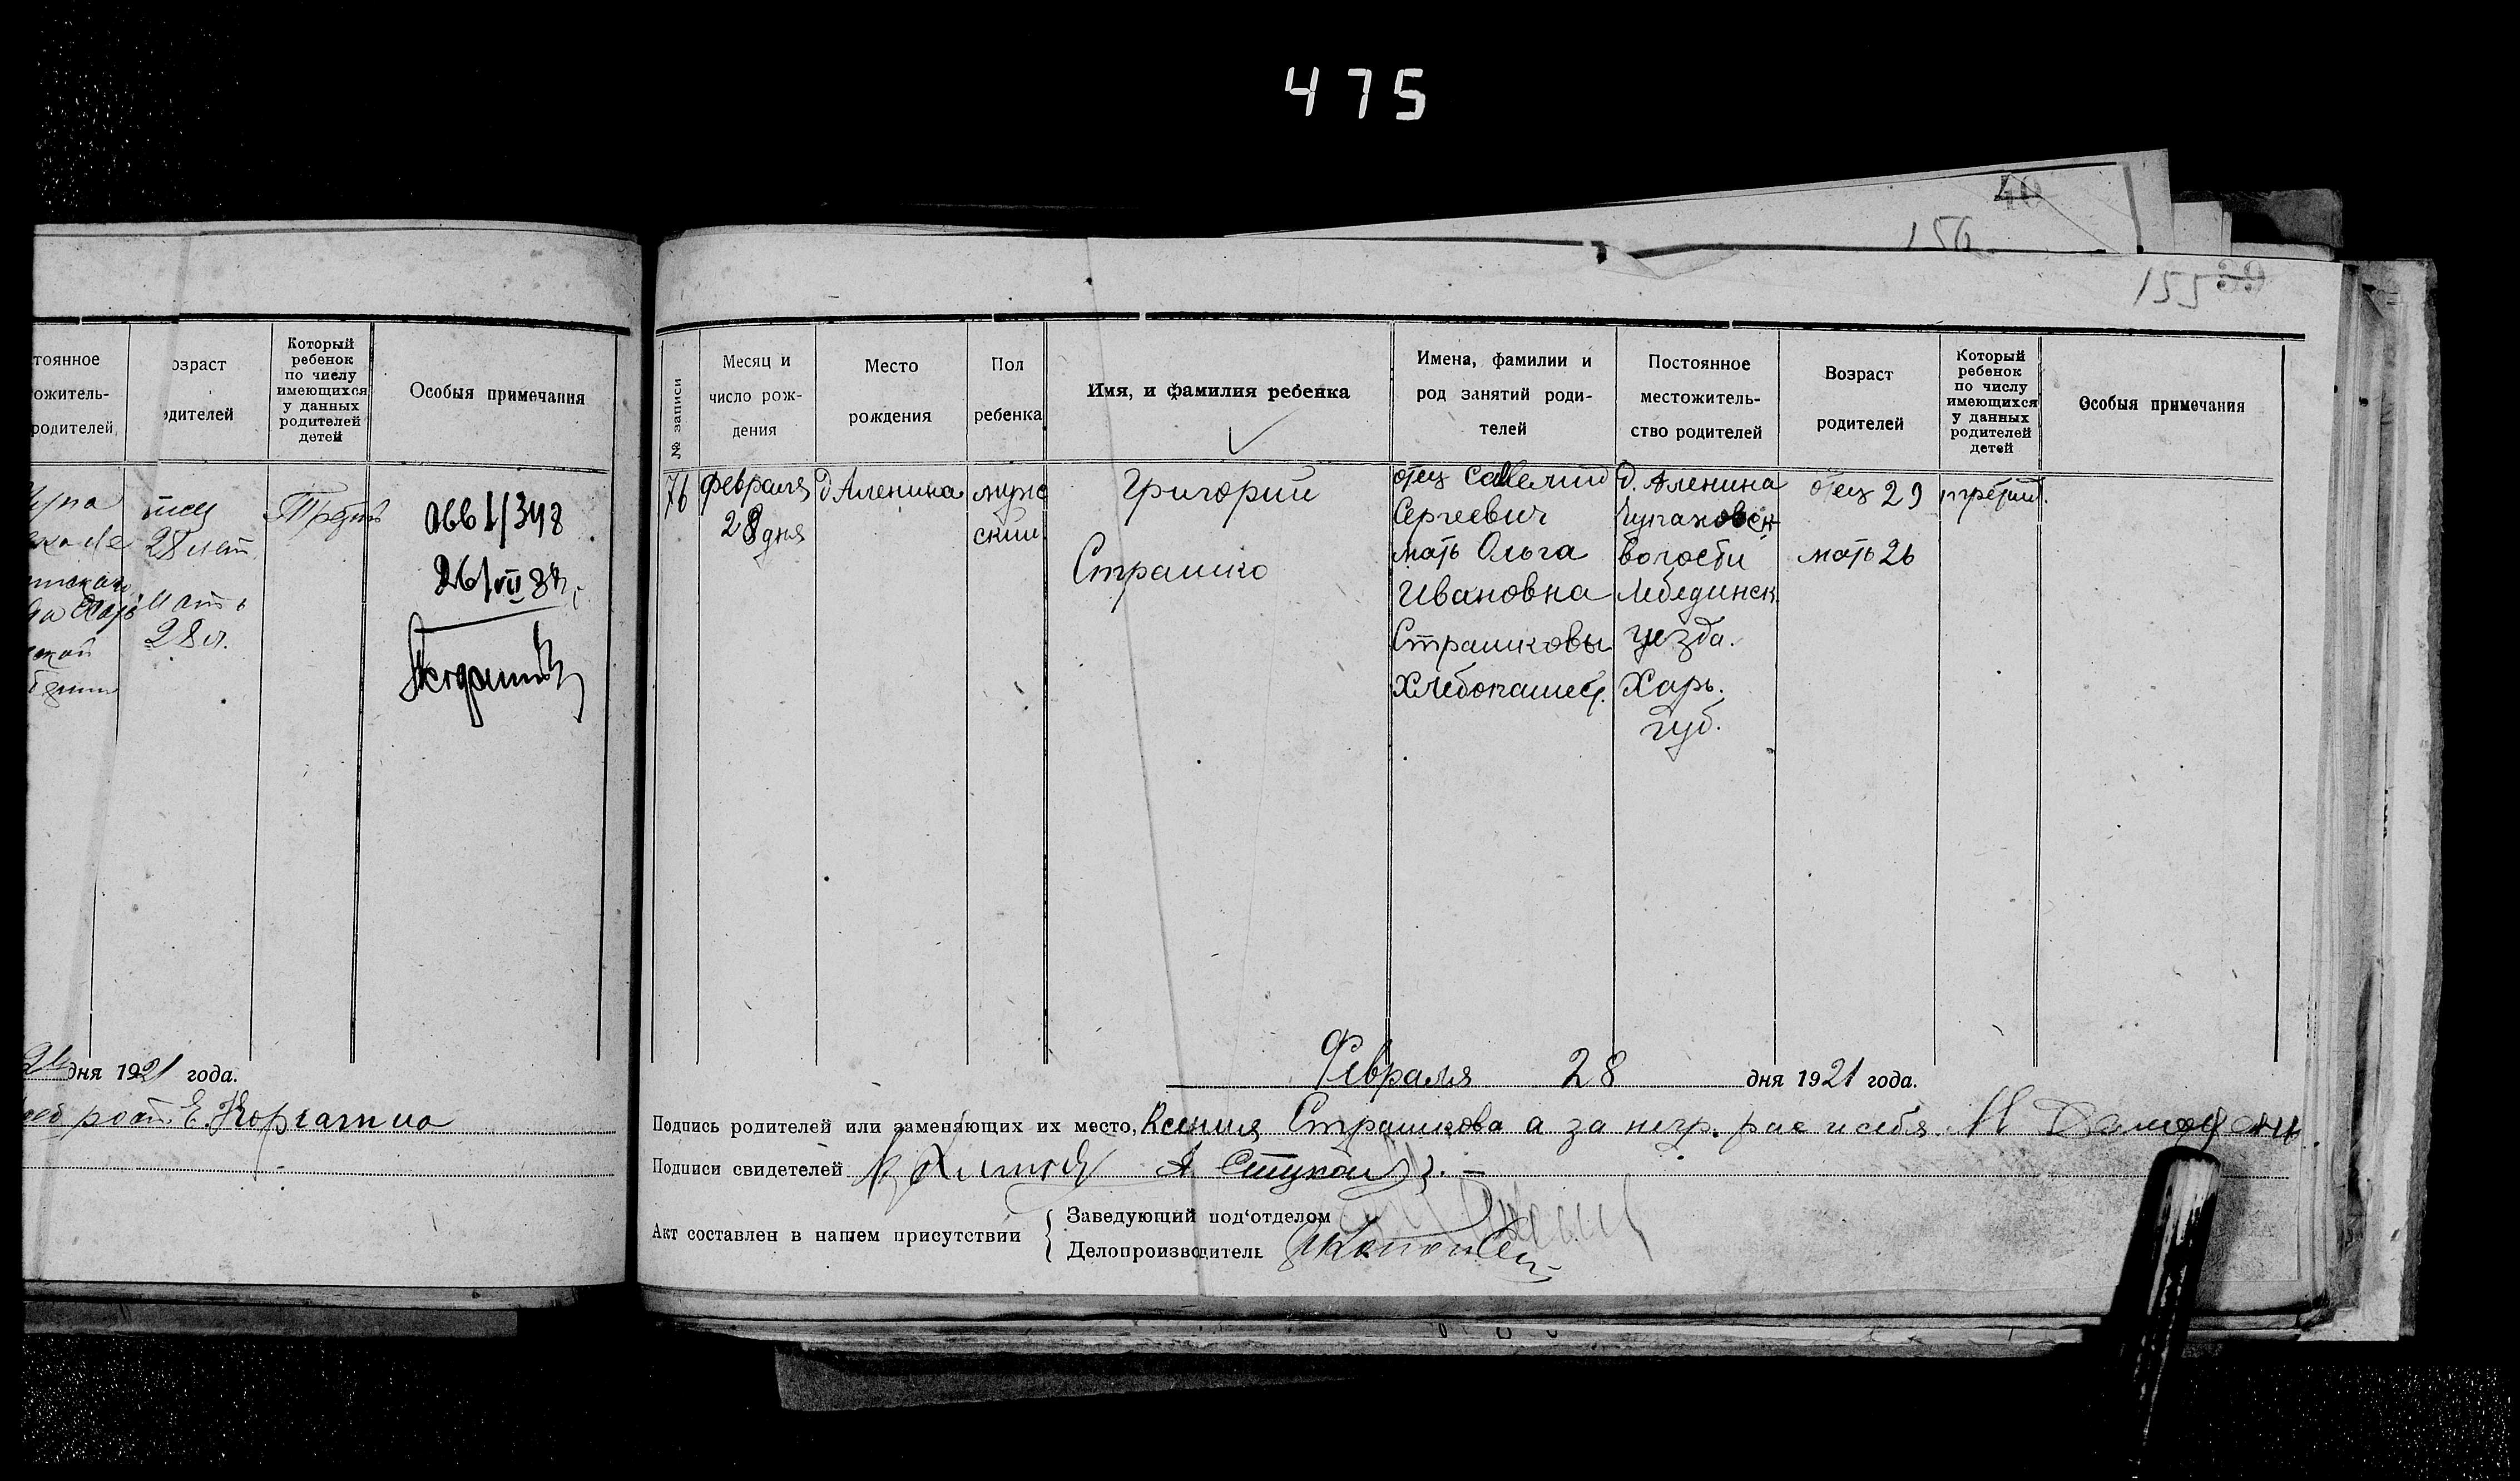 475
40
156
155 39
тоянное
ожитель-
родителей
озраст
одителей
Который
ребенок
по числу
имеющихся
у данных
родителей
детей
Особыя примечания
28 лет
мать
28 л.
Третий
1/348
26/VII
дня 1921 года.
№ записи
Месяц и
число рож-
дения
Место
рождения
Пол
ребенка
Имя, и фамилия ребенка
Имена, фамилии и
род занятий роди-
телей
Постоянное
местожитель-
ство родителей
Возраст
родителей
Который
ребенок
по числу
имеющихся
у данных
родителей
детей
Особыя примечания
76
февраля
28 дня
д Аленина
муже
ский
Григорий
Страшко
отец Савелий
Сергеевич
мать Ольга
Ивановна
Страшковы
Хлебопашец.
д. Аленина
Чупаховск
волости
Лебединск.
уезда.
Харь.
Губ.
отец 29
мать 26
третий.
Февраля 28 дня 1921 года.
Подпись родителей или заменяющих их место, Ксения Страшкова а за негр. рас и себя М
Подписи свидетелей
Акт составлен в нашем присутствии
Заведующий под‘отделом
Делопроизводитель